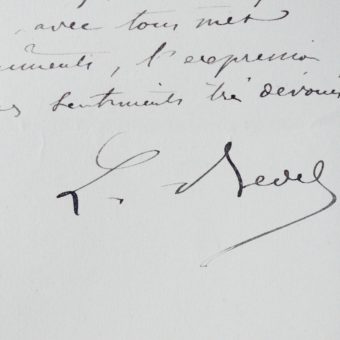 avec tous mes
ments, l'expression
sentiments très dévoués
L. Redel